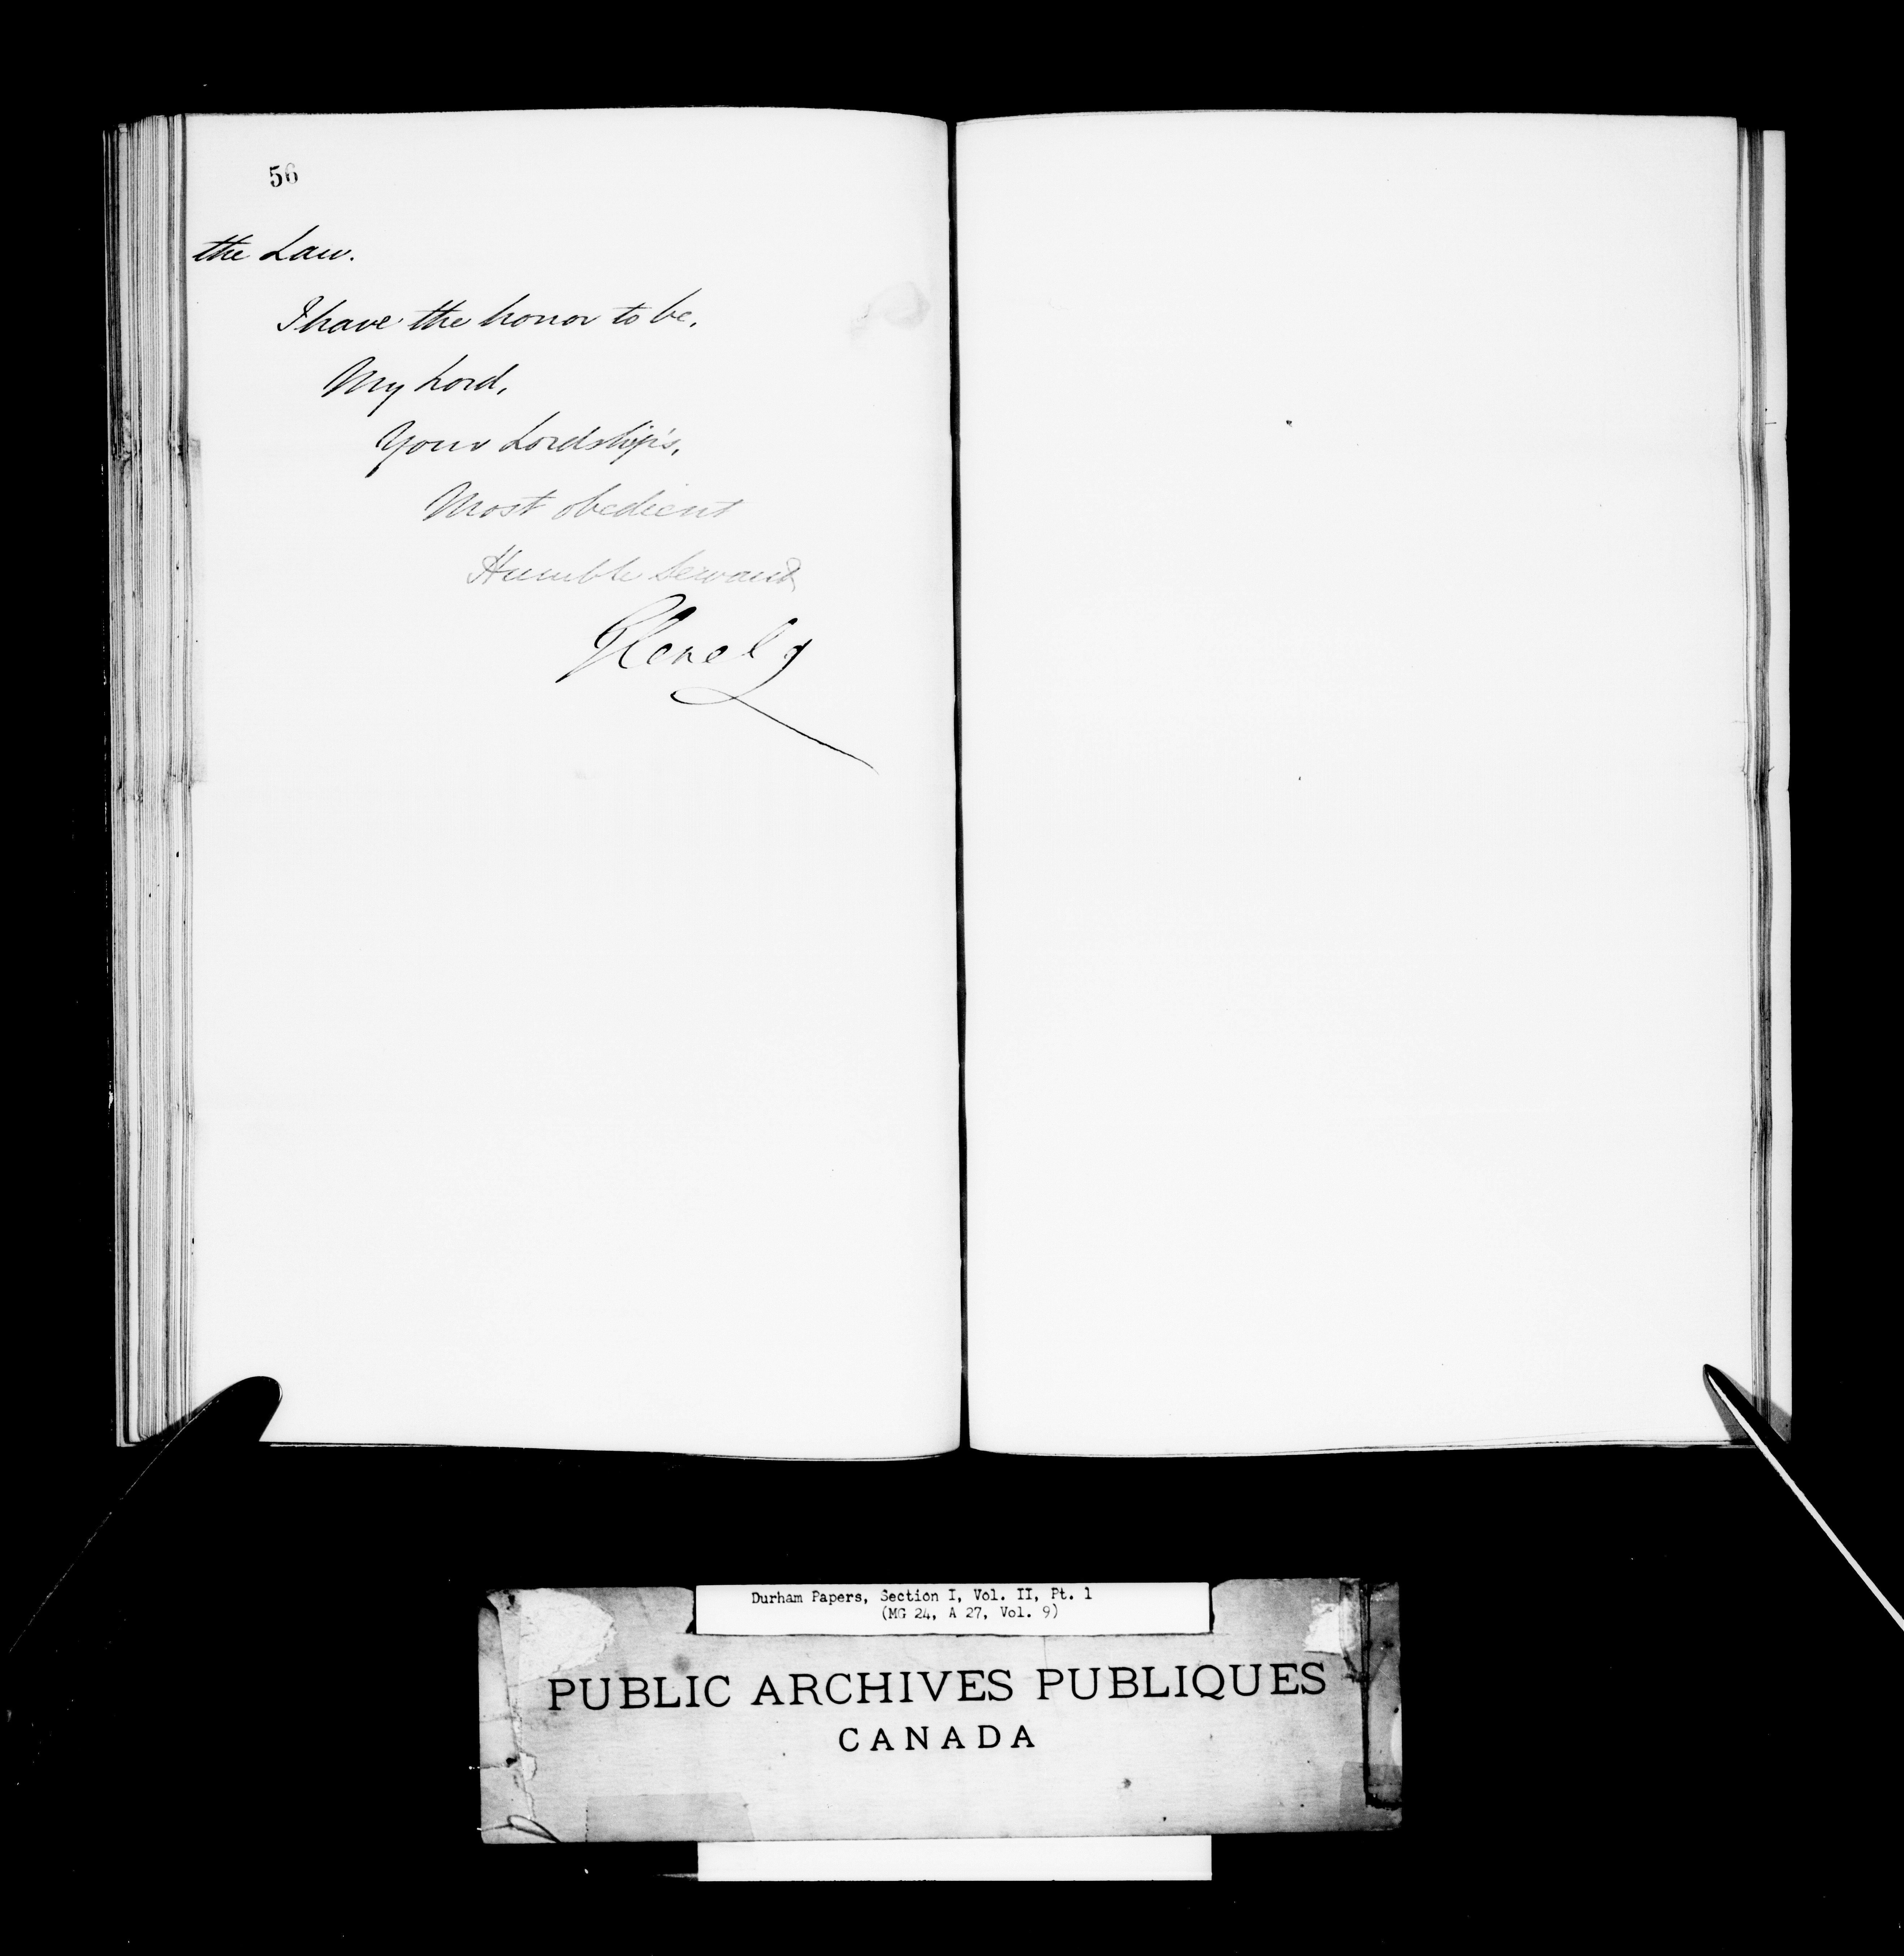 56
the Law.
I have the honor to be,
My Lord,
Your Lordship's,
Most obedient
Humble Servant
Glenelg
Durham Papers, Section I, Vol. II, Pt. 1
(MG 24, A 27, Vol. 9)
PUBLIC ARCHIVES PUBLIQUES
CANADA